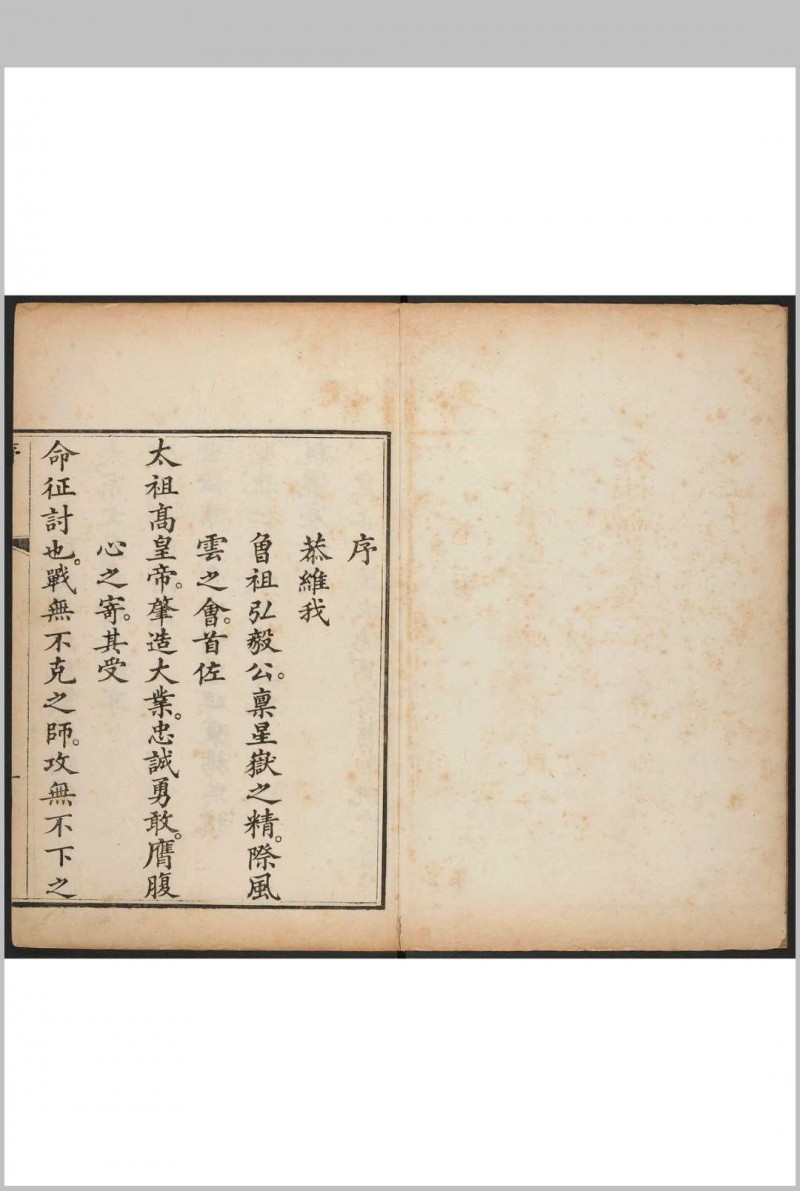 序
恭維我
曾祖弘毅公。稟星嶽之精。際風
雲之會。首佐
太祖高皇帝。肇造大業。忠誠勇敢。膺腹
心之寄。其受
命征討也。戰無不克之師。攻無不下之
一